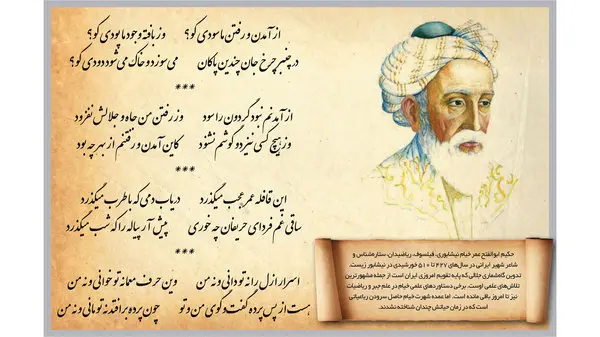 از آمدن و رفتن ما سودی کو؟ وز بافته وجود ما پودی کو؟
در چنبر چرخ جان چندین پاکان می سوزد و خاک می شود دودی کو؟
***
از آمدنم نبود گردون را سود وز رفتن من جاه و جلالش نفزود
وز هیچ کسی نیز دو گوشم نشنود کاین آمدن و رفتنم از بهر چه بود
***
این قافله عمر عجب میگذرد دریاب دمی که با طرب میگذرد
ساقی غم فردای حریفان چه خوری پیش آر پیاله را که شب میگذرد
***
اسرار ازل را نه تو دانی و نه من وین حرف معما نه تو خوانی و نه من
هست از پس پرده گفت و گوی من و تو چون پرده برافتد نه تو مانی و نه من
حکیم ابوالفتح عمر خیام نیشابوری، فیلسوف، ریاضیدان، ستاره‌شناس و
شاعر شهیر ایرانی در سال‌های ۴۲۷ تا ۵۱۰ خورشیدی در نیشابور زیست.
تدوین گاه‌شماری جلالی که پایه تقویم امروزی ایران است از جمله مشهورترین
تلاش‌های علمی اوست. برخی دستاوردهای علمی خیام در علم جبر و ریاضیات
نیز تا امروز باقی مانده است. اما عمده شهرت خیام حاصل سرودن رباعیاتی
است که در زمان حیاتش چندان شناخته نشدند.